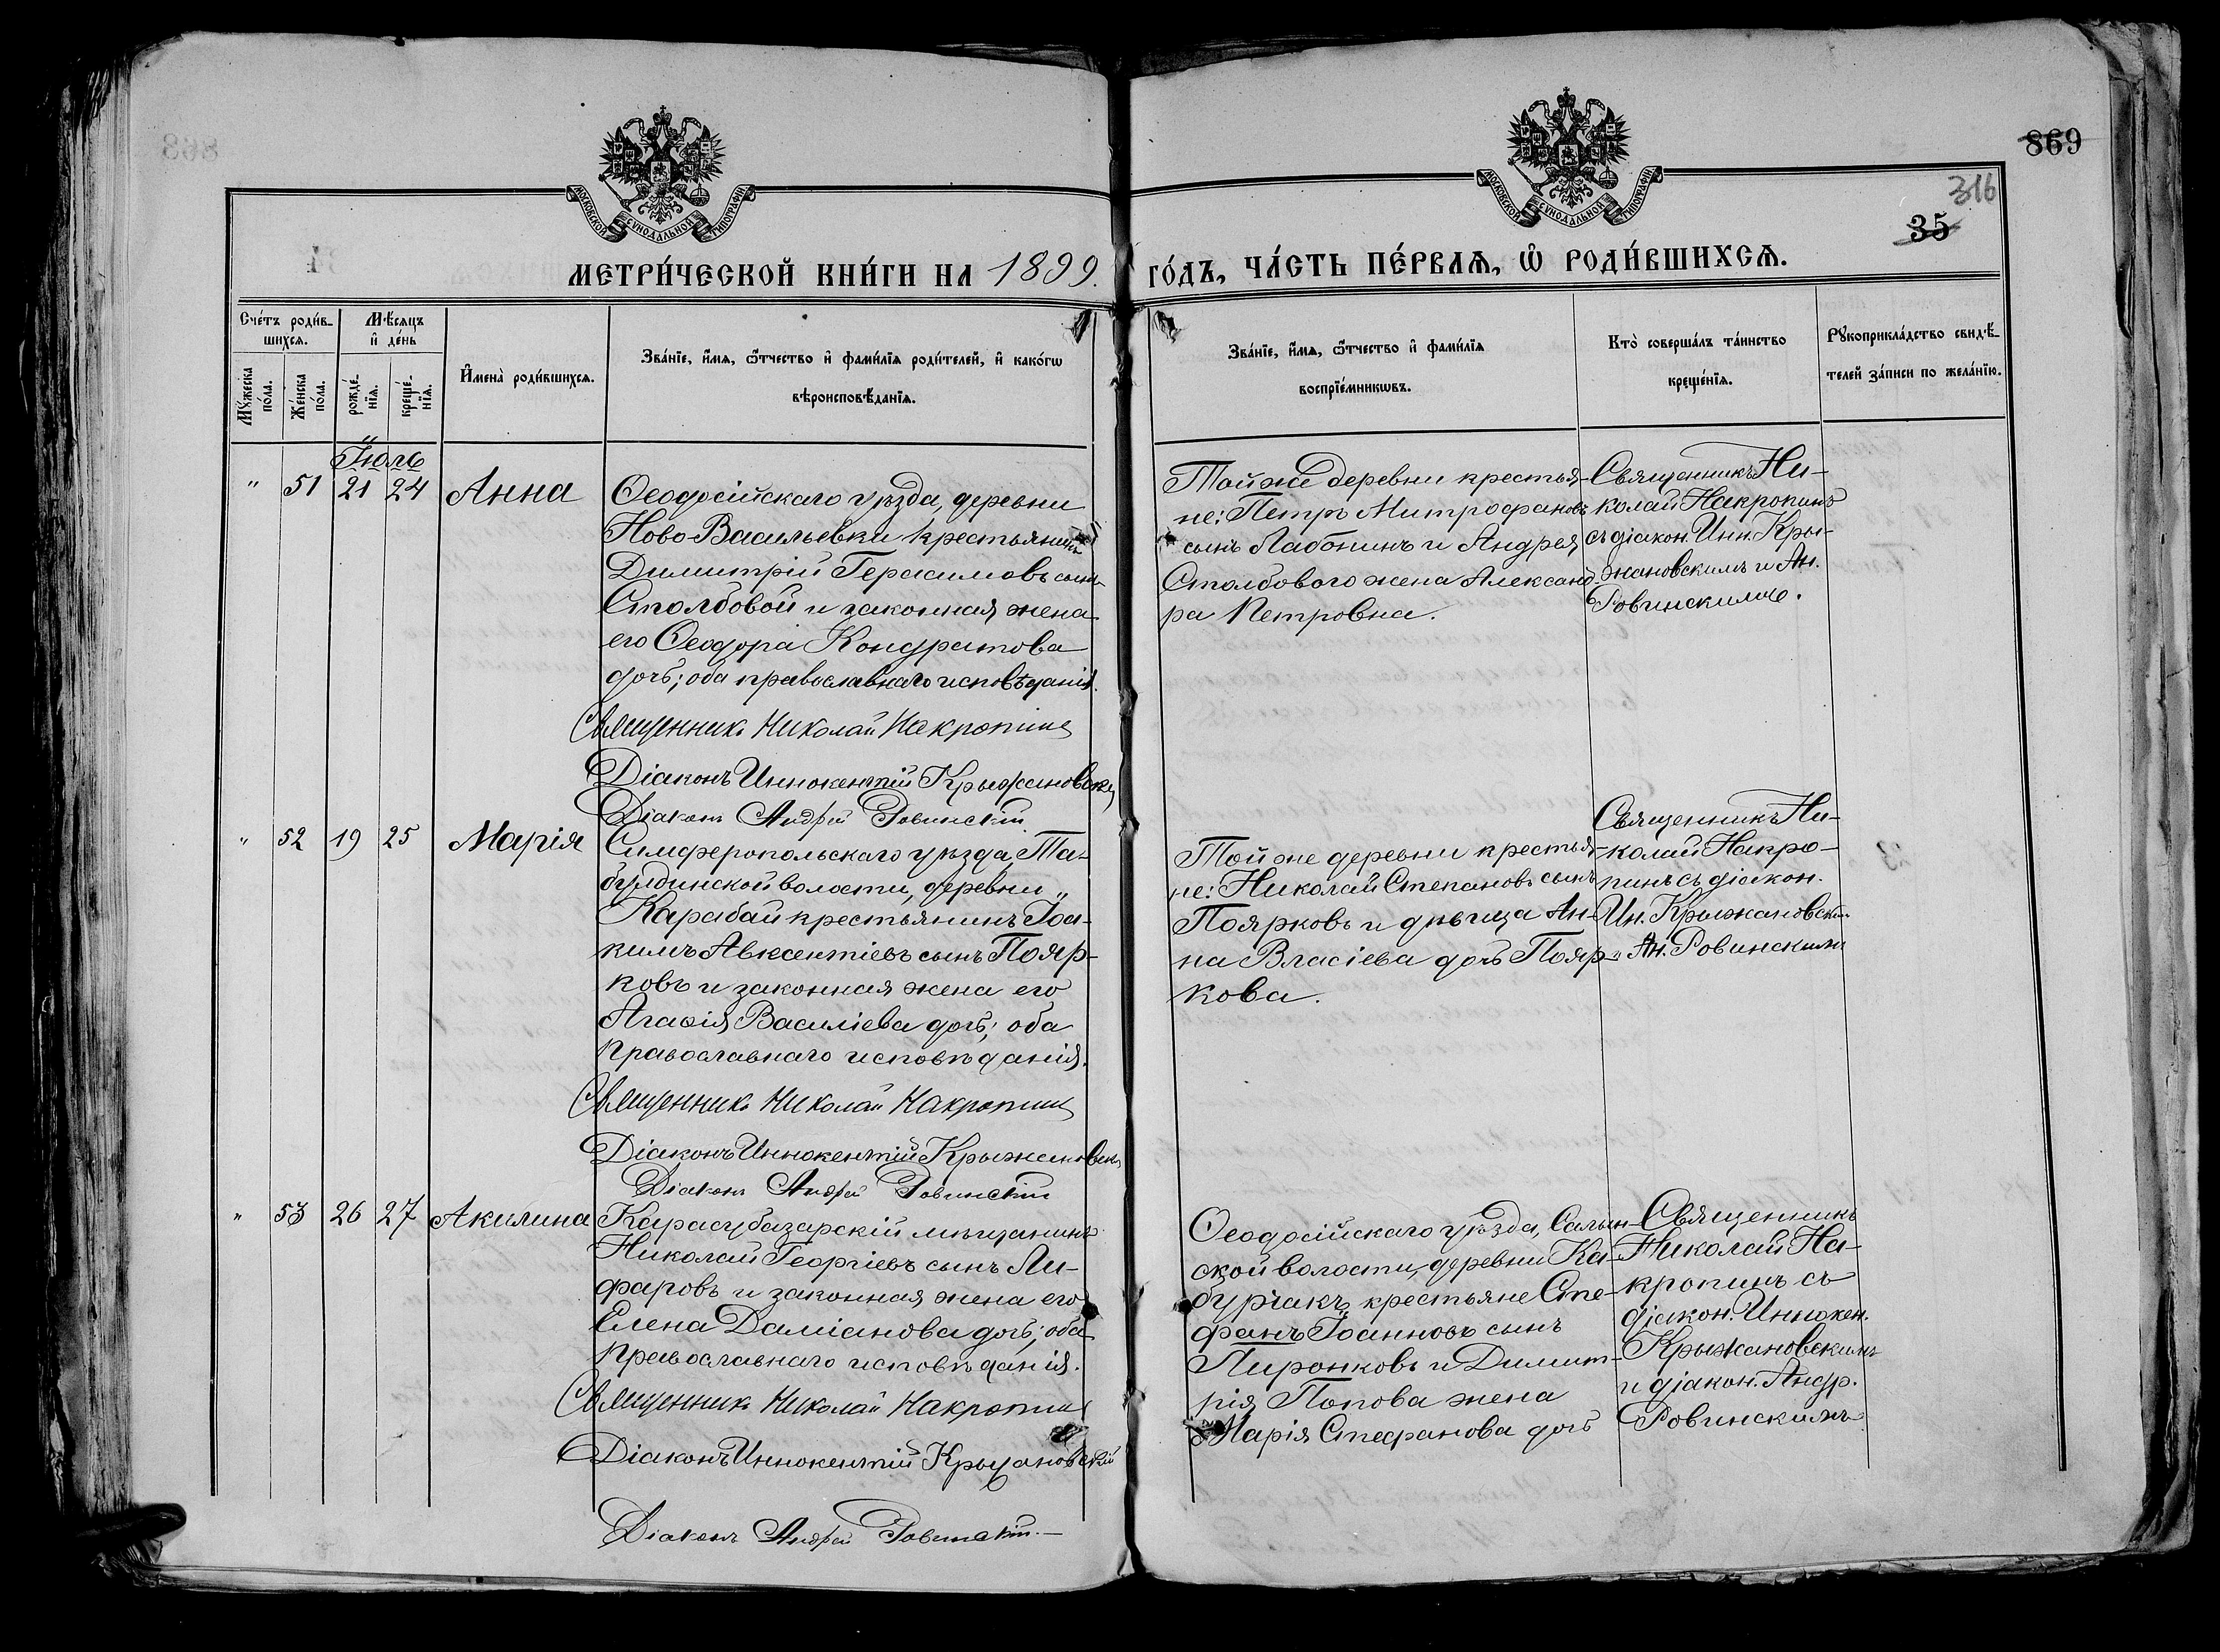 869
316
35
МОСКОВСКОЙ СѴНОДАЛЬНОЙ ТИПОГРАФІИ
МОСКОВСКОЙ СѴНОДАЛЬНОЙ ТИПОГРАФІИ
МЕТРИ́ЧЕСКОЙ КНИ́ГИ НА 1899. ГО́ДЪ, ЧА́СТЬ ПЕ́РВАѦ, Ѡ҆ РОДИ́ВШИХСѦ.
Сче́тъ роди́в-
шихсѧ.
Мꙋ́жеска по́ла.
Же́нска по́ла.
Мѣ́сѧцъ
и҆ де́нь
рожде́-
нїѧ.
креще́-
нїѧ.
И҆мена̀ роди́вшихсѧ.
Зва́нїе, и҆́мѧ, ѻ҆́тчество и҆ фами́лїѧ роди́телей, и҆ како́гѡ
вѣроисповѣ́данїѧ.
Зва́нїе, и҆́мѧ, ѻ҆́тчество и҆ фами́лїѧ
воспрїе́мникѡвъ.
Кто̀ соверша́лъ та́инство
креще́нїѧ.
Рꙋкоприкла́дство свидѣ́-
телей за́писи по жела́нїю.
Іюль
" 51 21 24 Анна
Ѳеодосійскаго уѣзда, деревни
Ново-Васильевки крестьянинъ
Димитрій Герасимовъ сынъ
Столбовой и законная жена
его Ѳеодора Кондратова
дочь; оба православнаго исповѣданія.
Священникъ Николай Накропинъ
Діаконъ Иннокентій Крыжановскій
Діаконъ Андрей Ровинскій
Той же деревни крестья-
не: Петръ Митрофановъ
сынъ Лабонинъ и Андрея
Столбового жена Александ-
ра Петровна.
Священникъ Ни-
колай Накропинъ
съ діакон. Инн. Кры-
жановскимъ и Ан.
Ровинскимъ.
" 52 19 25 Марія
Симферопольскаго уѣзда, Та-
булдинской волости, деревни
Карабай крестьянинъ Іоа-
кимъ Авксентіевъ сынъ Пояр-
ковъ и законная жена его
Агаѳія Василіева дочь; оба
православнаго исповѣданія.
Священникъ Николай Накропинъ
Діаконъ Иннокентій Крыжановскій
Діаконъ Андрей Ровинскій
Той же деревни крестья-
не: Николай Степановъ сынъ
Поярковъ и дѣвица Ан-
на Власіева дочь Пояр-
кова.
Священникъ Ни-
колай Накро-
пинъ съ діакон.
Ин. Крыжановским
и Ан. Ровинскимъ
" 53 26 27 Акилина
Карасубазарскій мѣщанинъ
Николай Георгіевъ сынъ Ли-
фаровъ и законная жена его
Елена Даміанова дочь; оба
православнаго исповѣданія.
Священникъ Николай Накропинъ
Діаконъ Иннокентій Крыжановскій
Діаконъ Андрей Ровинскій.
Ѳеодосійскаго уѣзда, Салын-
ской волости, деревни Ка-
бурчакъ крестьяне Сте-
фанъ Іоанновъ сынъ
Пиронковъ и Димит-
рія Попова жена
Марія Стефанова дочь
Священникъ
Николай На-
кропинъ съ
діакон. Иннокен.
Крыжановскимъ
и діакон. Андр.
Ровинскимъ